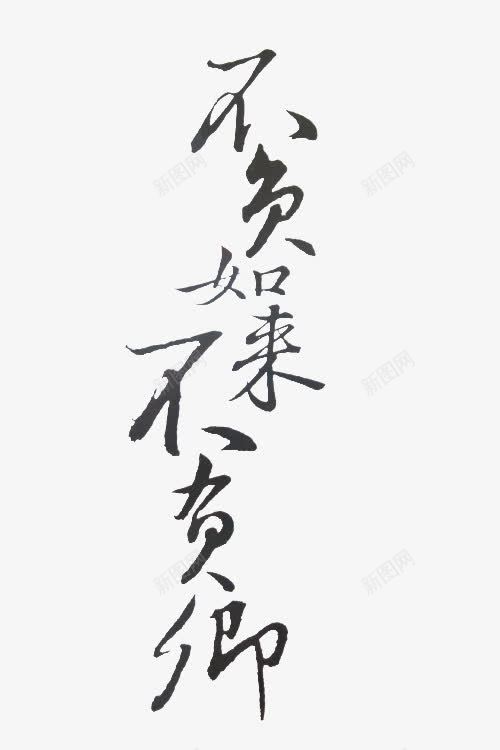 不负如来
不负卿
新图网
新图网
新图网
新图网
新图网
新图网